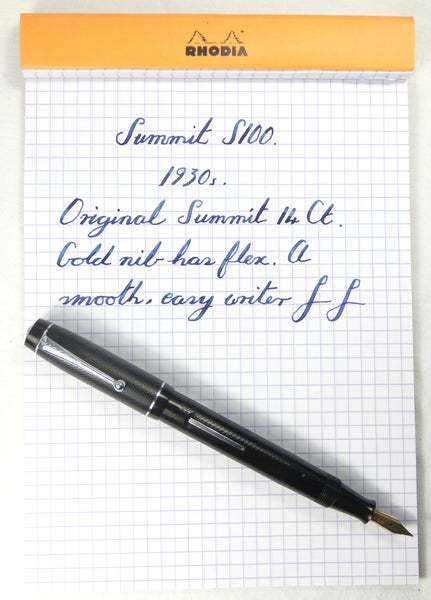 RHODIA
Summit S100.
1930s.
Original Summit 14 Ct.
Gold nib has flex. A
smooth, easy writer f f